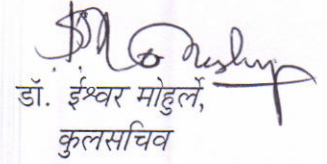 डॉ. ईश्वर मोहुर्ले,
कुलसचिव